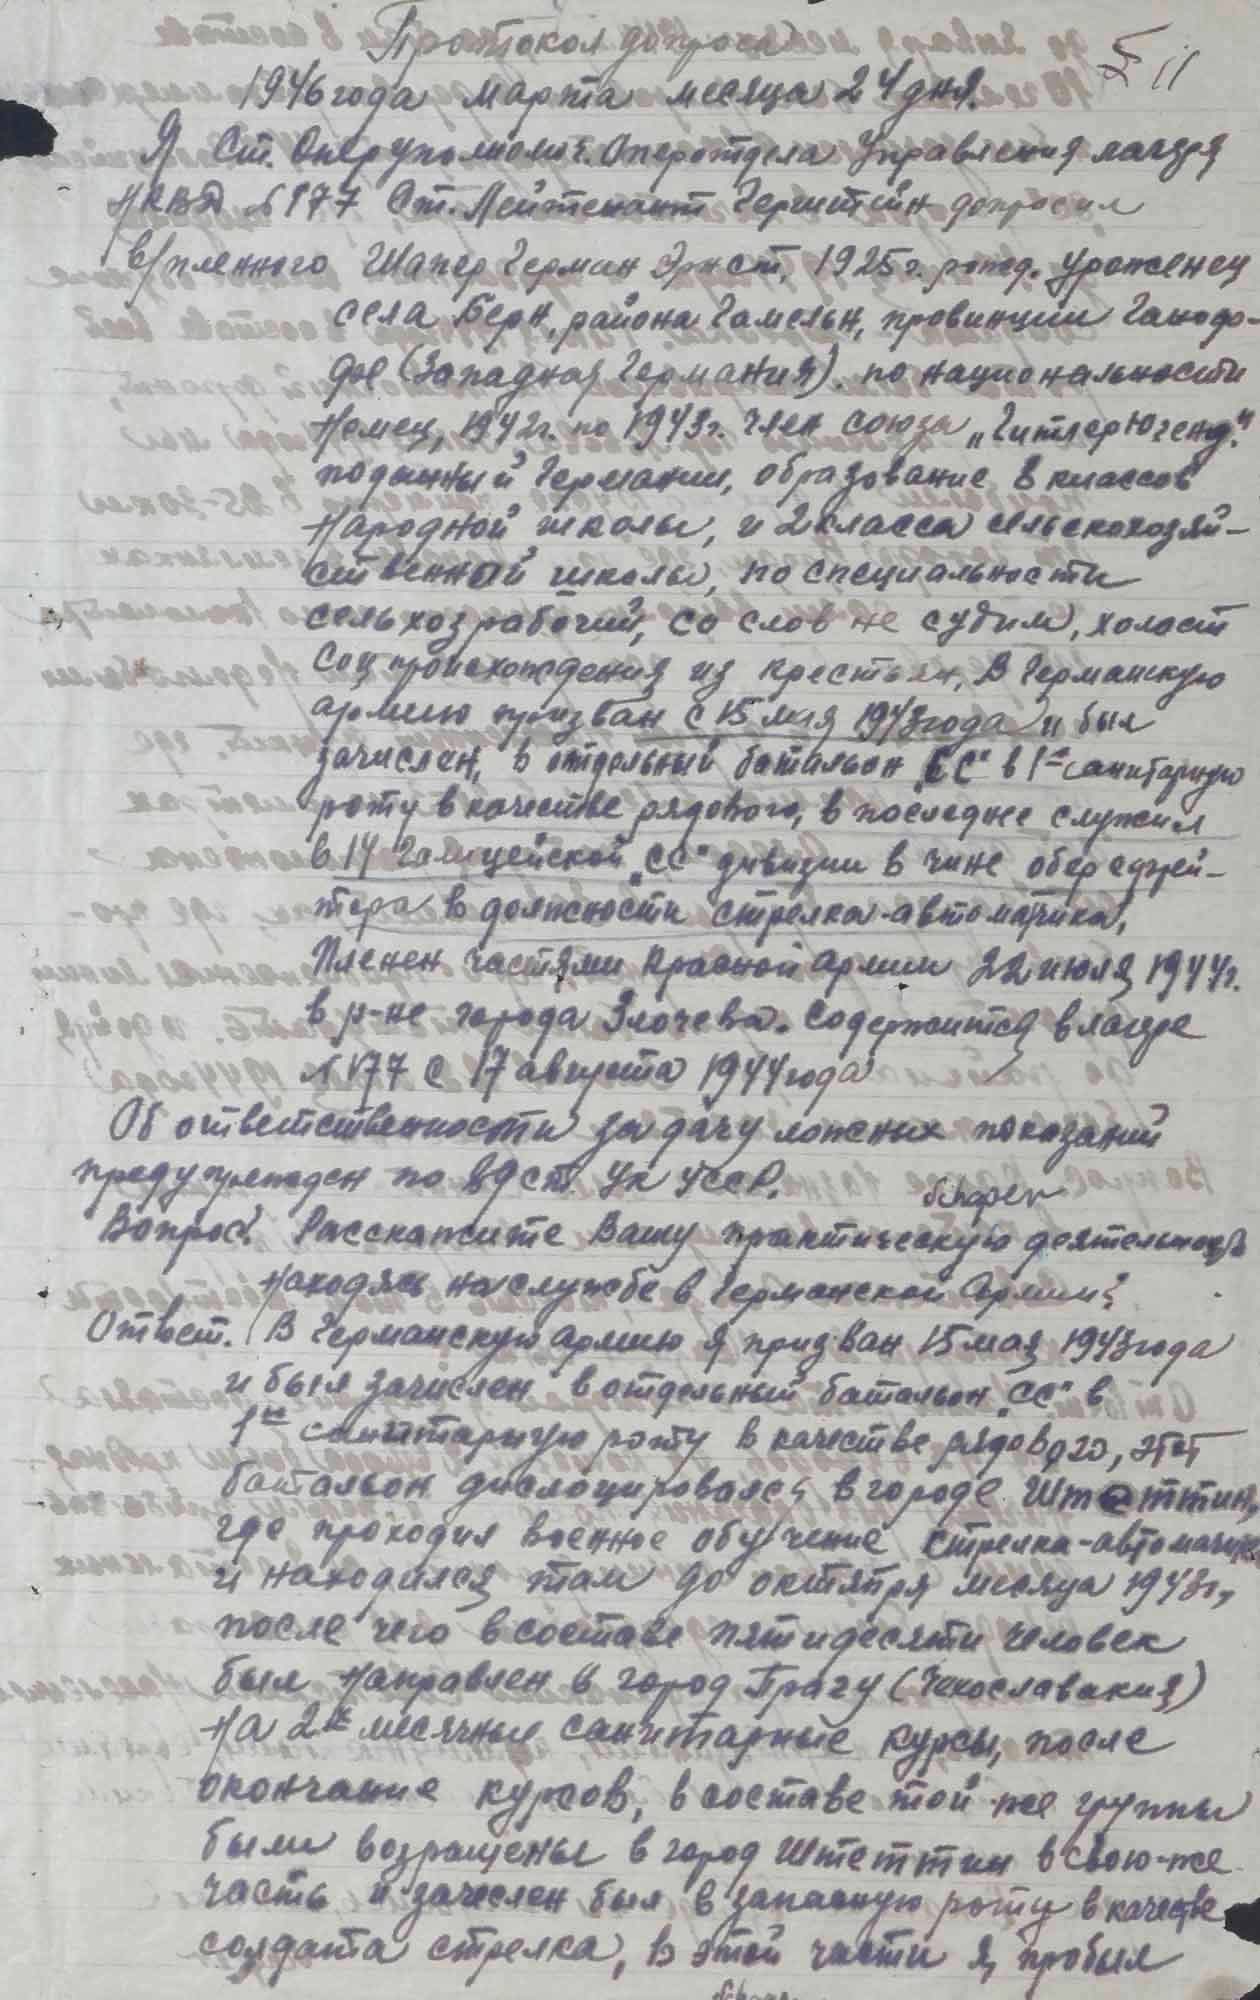 Протокол допроса
11
1946 года марта месяца 24 дня.
Я Ст. Оперуполномоч. Оперотдела Управления лагеря
НКВД №177 Ст. Лейтенант Герштейн допросил
в/пленного Шапер Герман Эрнст, 1925 г. рожд. уроженец
села Берн, района Гамельн, провинции Ганофо-
фое (Западная Германия). по национальности
Немец, 1942г. по 1943г. член союза „Гитлер Югенд."
подданный Германии, образование 8 классов
Народной школы, и 2 класса сельскохозяй-
ственный школы, по специальности
сельхозрабочий, со слов не судим, холост
соц происхождения из крестьян, В Германскую
армию призван с 15 мая 1943 года и был
зачислен, в отдельный батальон „СС" в 1ю санитарную
роту в качестве рядового, в последнее служил
в 14 Галицейской „СС" дивизии в чине обер ефрей-
тора в должности стрелка-автоматчика,
Пленен частями Красной армии 22 июля 1944г.
в р-не города Злочева. Содержится в лагере
№177 с 17 августа 1944 года
Об ответственности за дачу ложных показаний
предупрежден по 89 ст. УК УССР.
Schaper
Вопрос: Расскажите Вашу практическую деятельность
находясь на службе в Германской Армии?
Ответ. В Германскую армию я призван 15 мая 1943 года
и был зачислен в отдельный батальон „СС" в
1ю санитарную роту в качестве рядового, этот
батальон дислоцировался в городе Штеттин,
где проходил военное обучение стрелка-автоматчика
и находился там до октября месяца 1943г.,
после чего в составе пятидесяти человек
был направлен в город Прагу (Чехославакия)
на 2х месячные санитарные курсы, после
окончание курсов, в составе той-же группы
были возращены в город Штеттин в свою-же
часть и зачеслен был в запасную роту в качестве
солдата стрелка, в этой части я пробыл